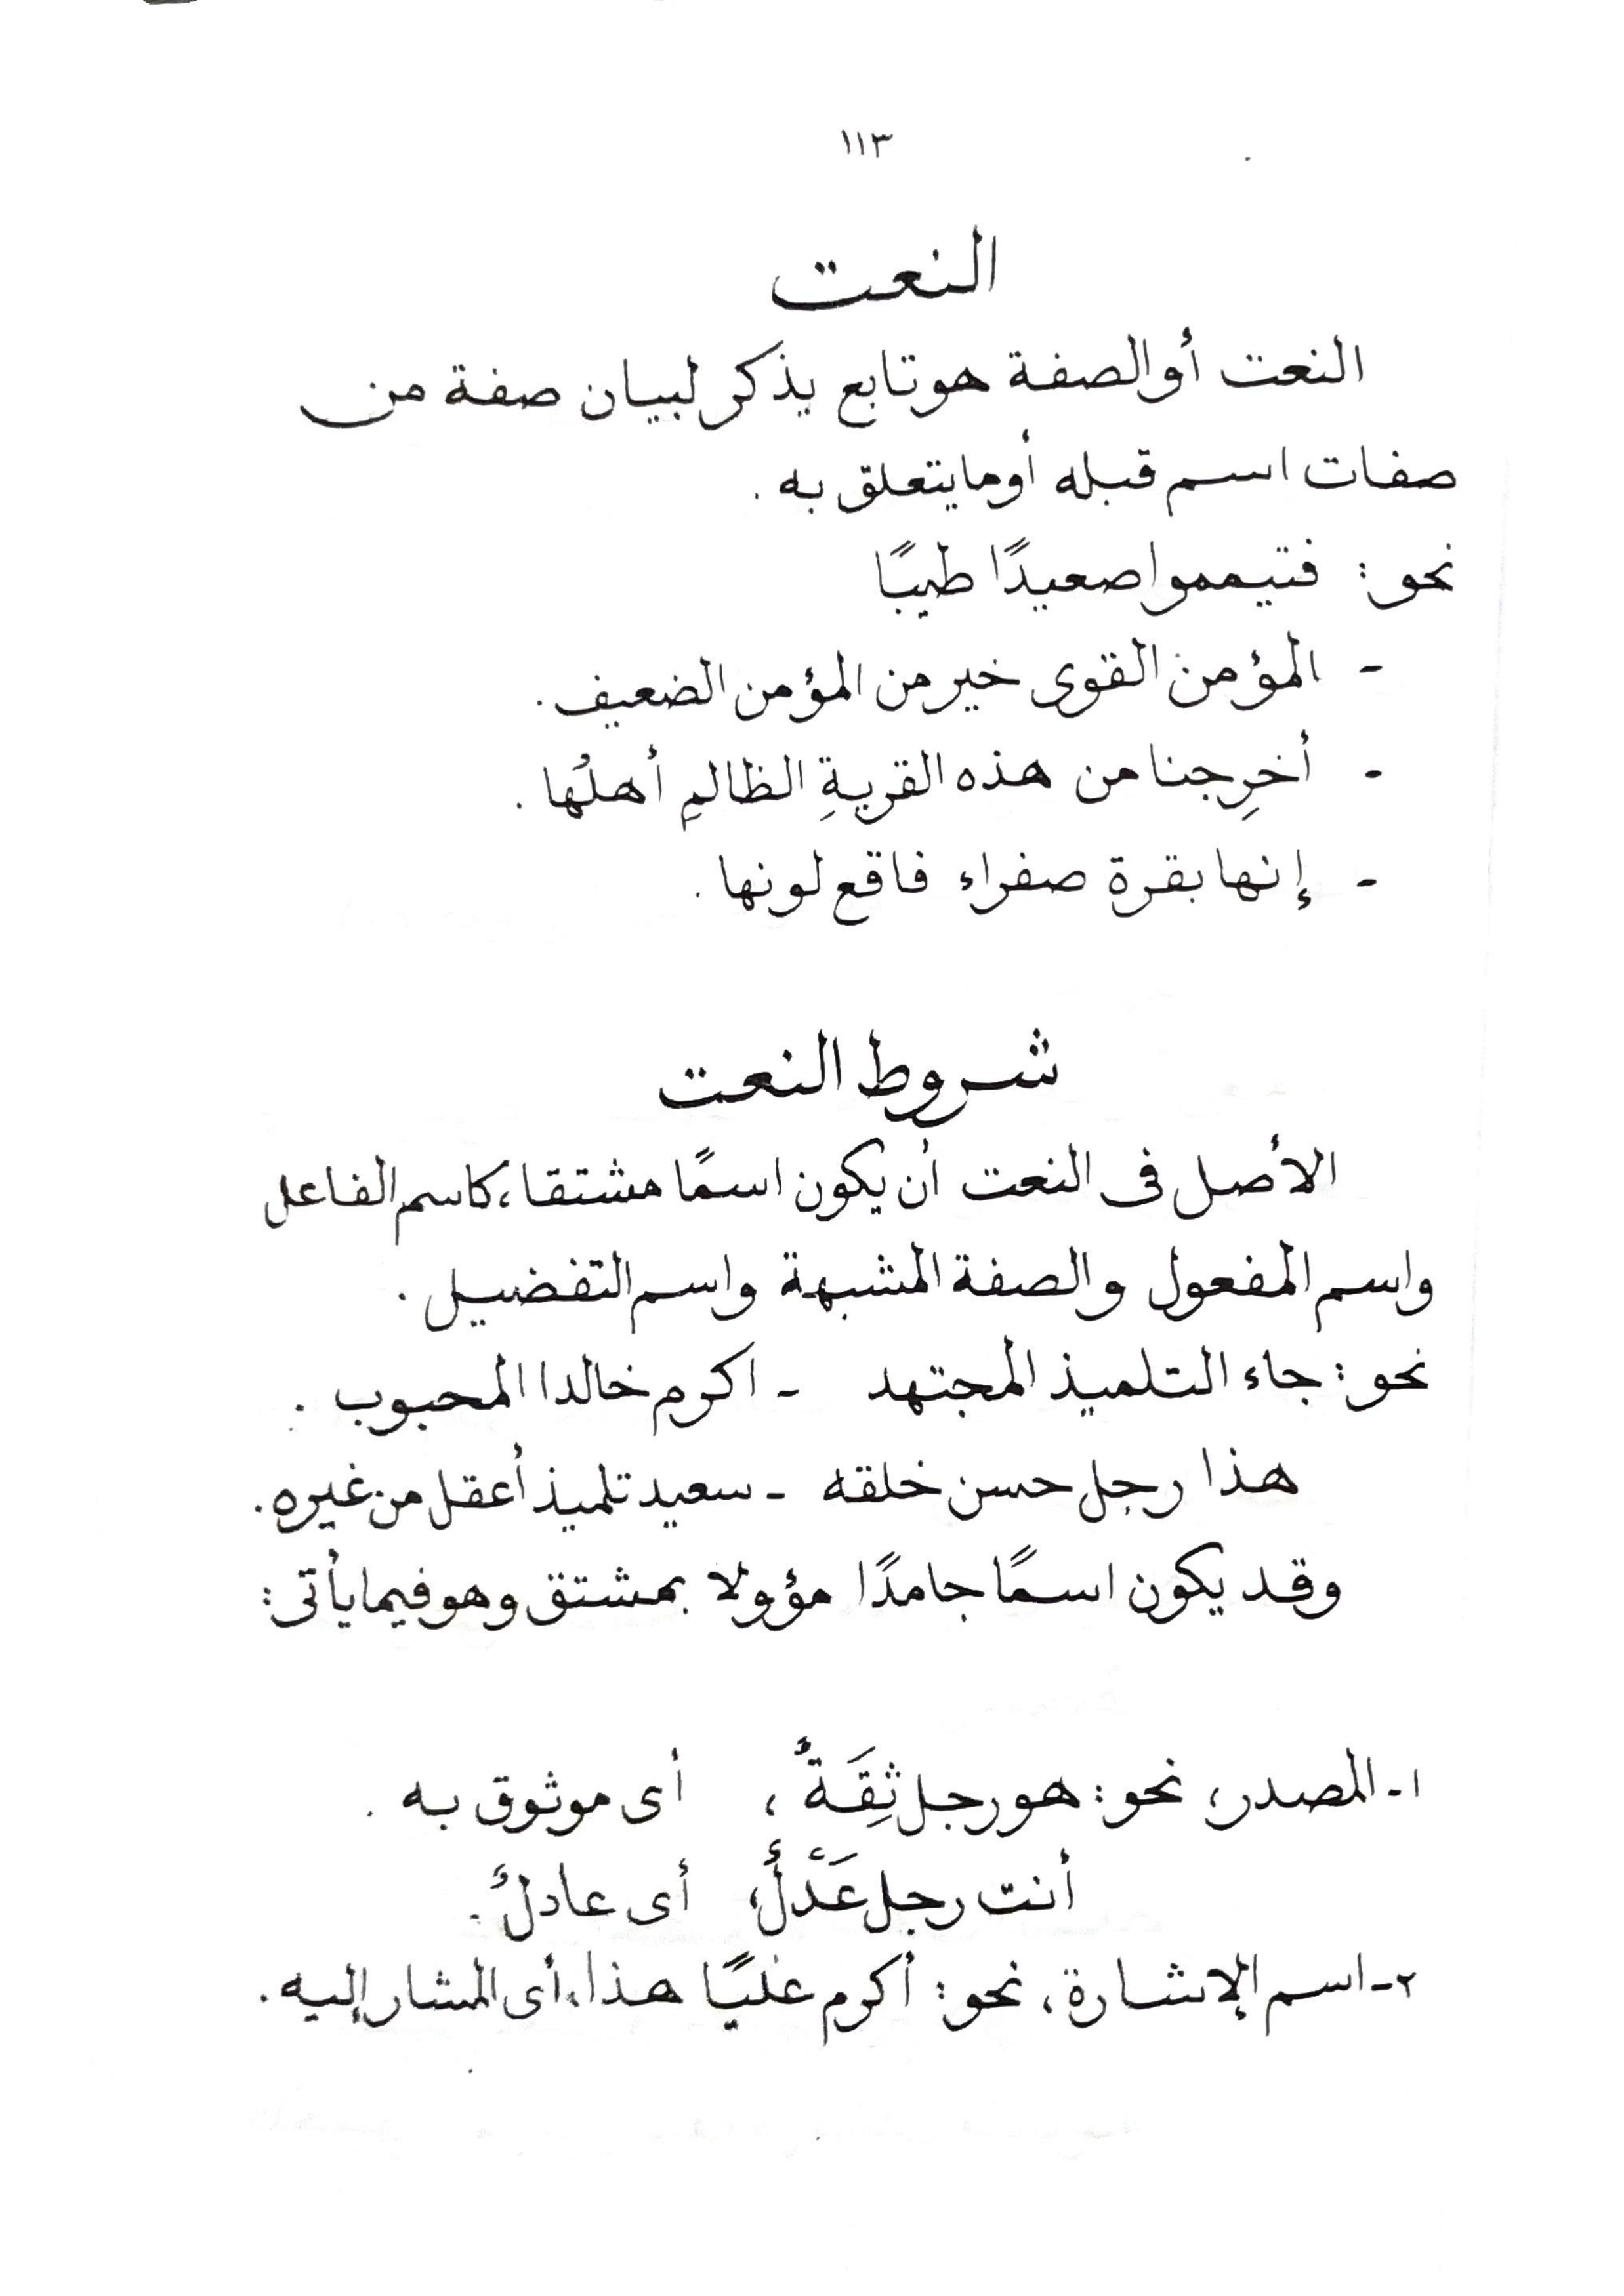 ١١٣
النعت
النعت أو الصفة هو تابع يذكر لبيان صفة من
صفات اسم قبله أو ما يتعلق به .
نحو : فتيمموا صعيدًا طيبًا
- المؤمن القوى خير من المؤمن الضعيف .
- أخرِجنا من هذه القريةِ الظالمِ أهلُها .
- إنها بقرة صفراء فاقع لونها .
شروط النعت
الأصل فى النعت أن يكون اسمًا مشتقا، كاسم الفاعل
واسم المفعول والصفة المشبهة واسم التفضيل .
نحو : جاء التلميذ المجتهد - اكرم خالدا المحبوب .
هذا رجل حسن خلقه - سعيد تلميذ أعقل من غيره .
وقد يكون اسمًا جامدًا مؤولا بمشتق وهو فيما يأتى :
١- المصدر، نحو : هو رجل ثِقَةٌ ، أى موثوق به .
أنت رجل عَدْلٌ، أى عادلٌ .
٢- اسم الإشارة، نحو : أكرم عليًا هذا، أى المشار إليه .